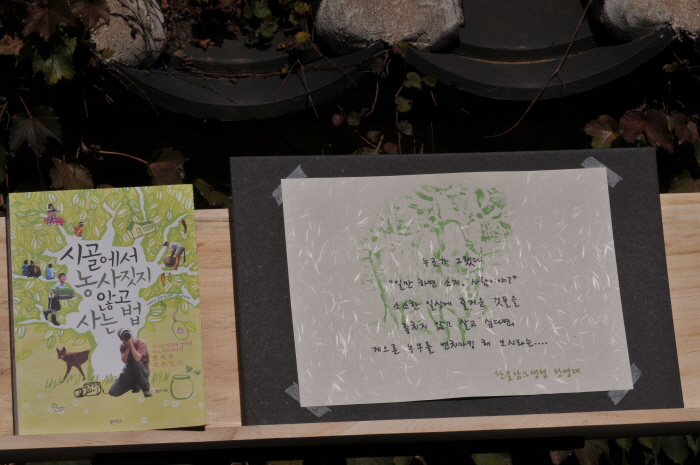 시골에서
농사짓지
않고
사는 법
누군가 그랬다.
"일만 하면 소지, 사람이야?"
소소한 일상에 즐거운 것들을
놓치지 않고 살고 싶다면,
게으른 농부를 벤치마킹 해 보시라는....
한울남도생협